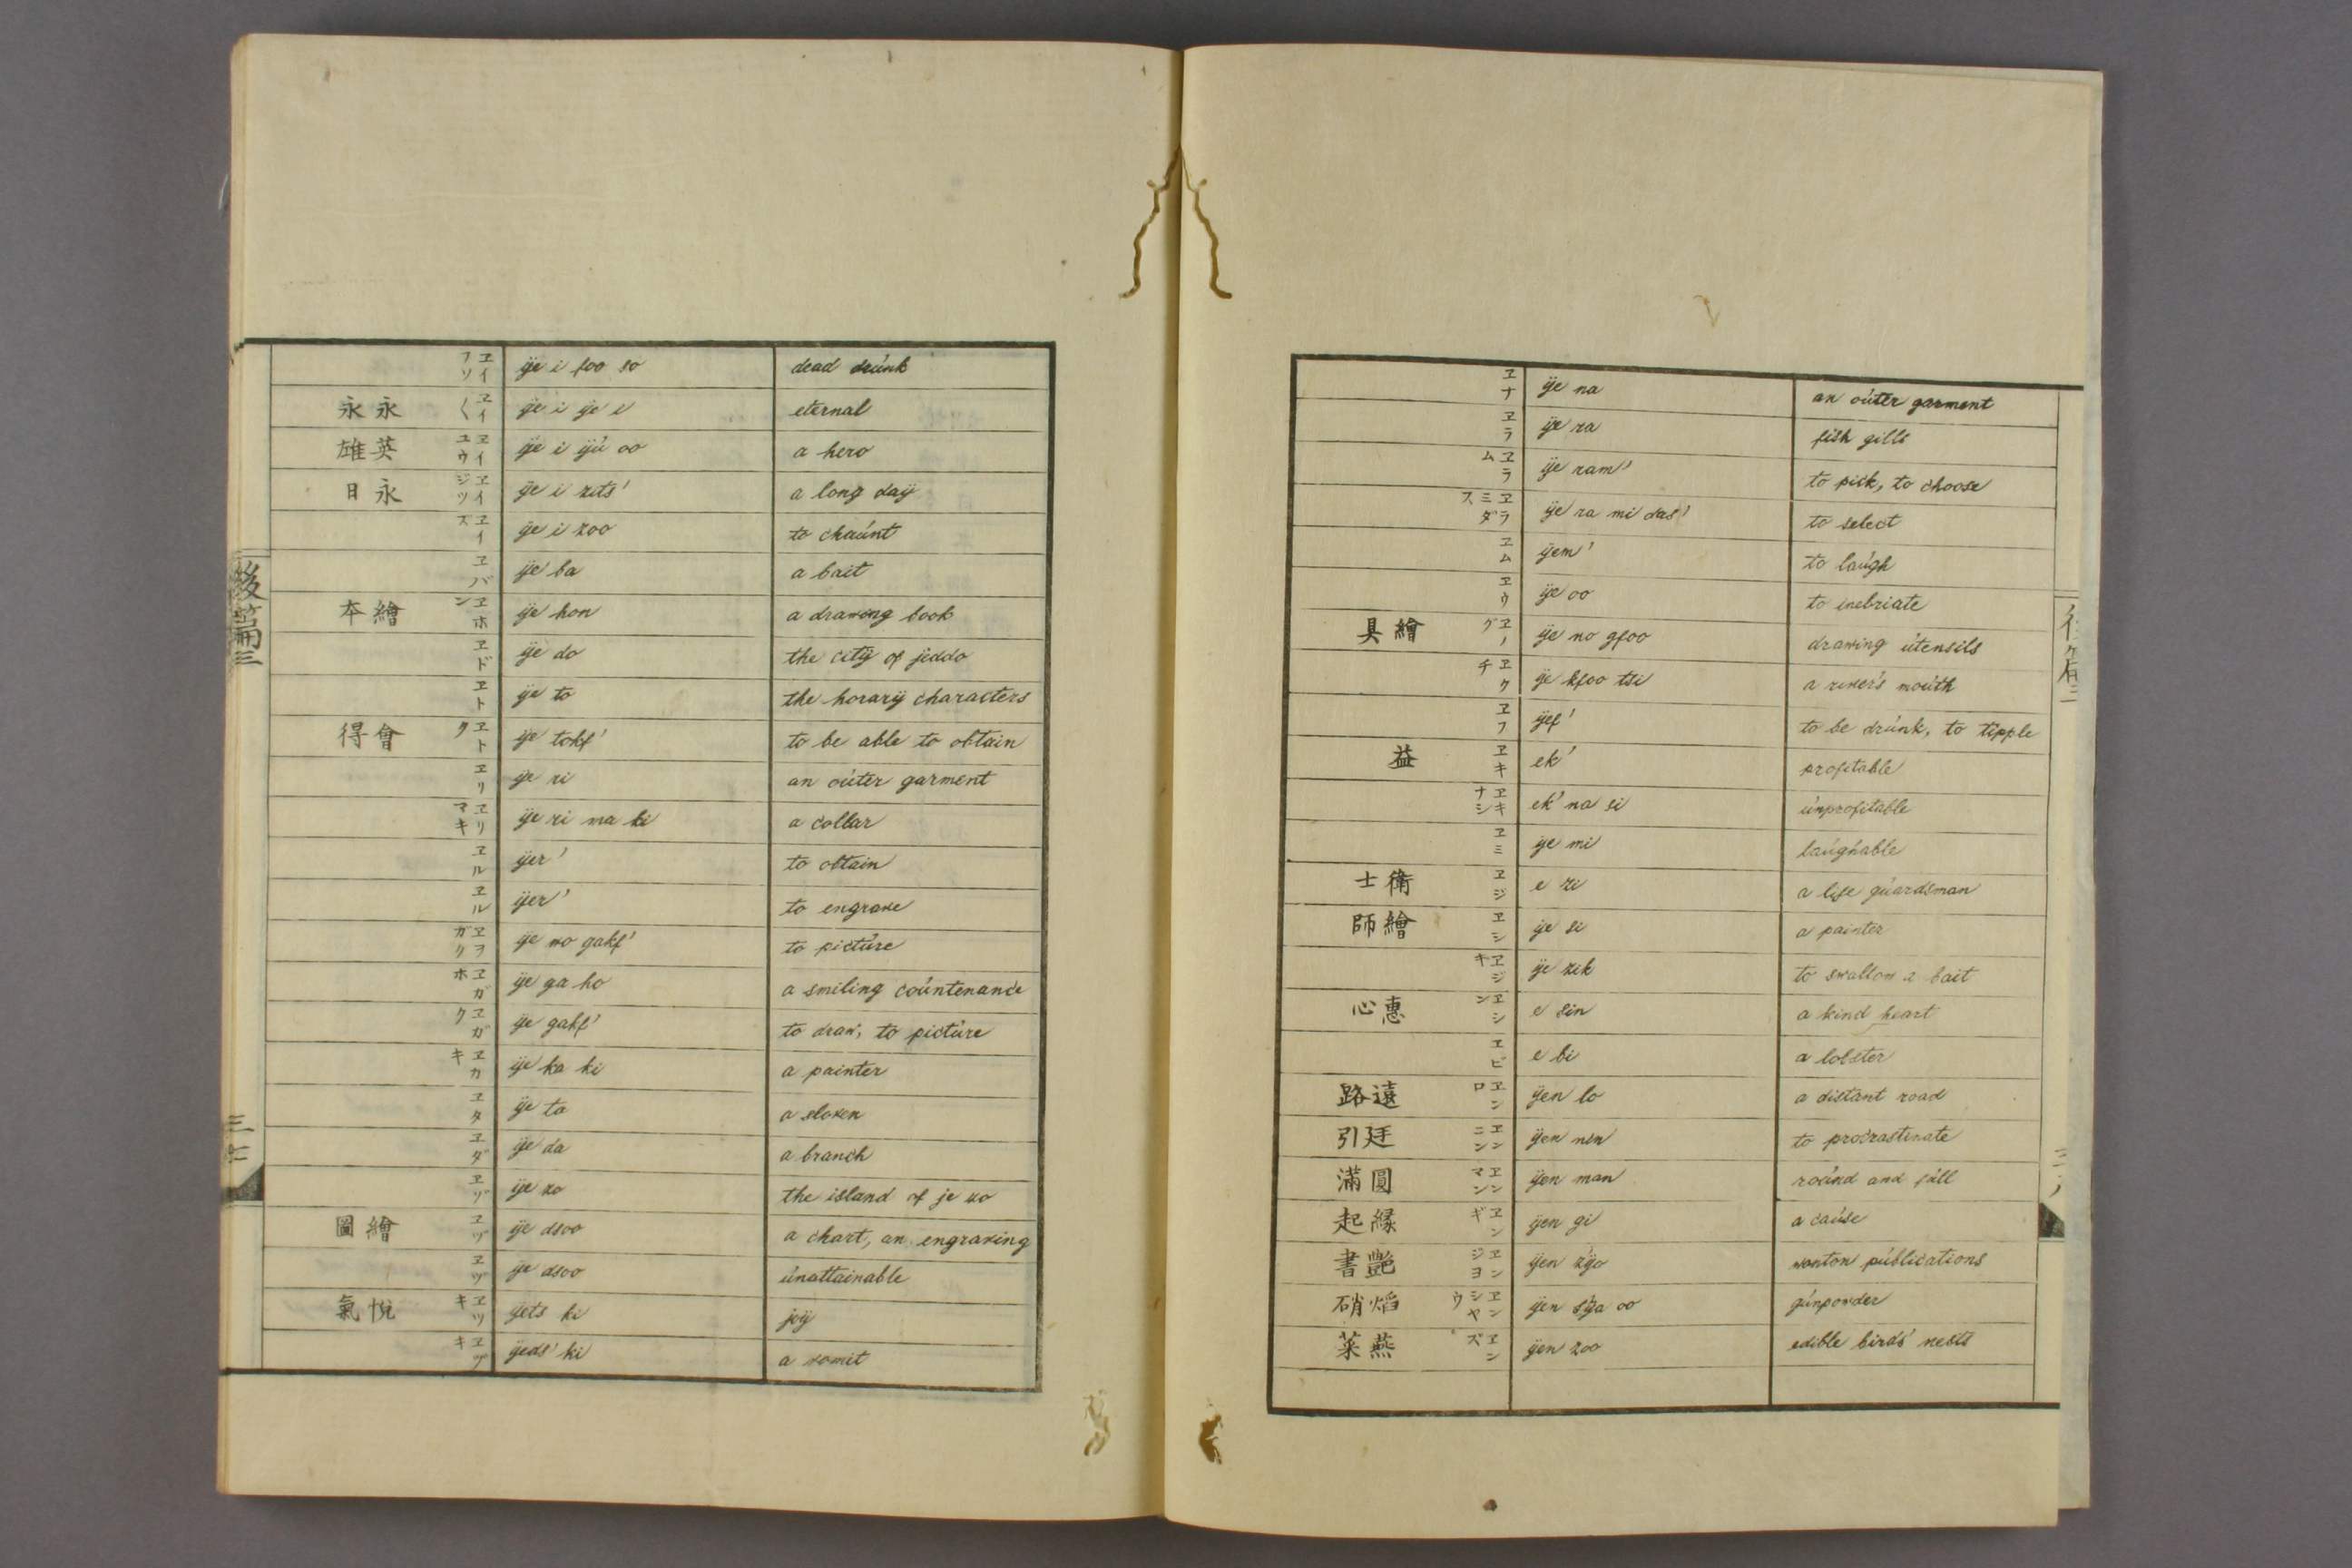 ヱイフソ ÿe i foo so dead drúnk
永永 ヱイ〱 ÿe i ÿe i eternal
雄英 ヱイユウ ÿe i ÿú oo a hero
日永 ヱイジツ ÿe i zits' a long daÿ
ヱイズ ÿe i zoo to chaúnt
ヱバ ÿe ba a bait
本繪 ヱホン ÿe hon a drawing book
ヱド ÿe do the citÿ of jeddo
ヱト ÿe to the horarÿ characters
得會 ヱトク ÿe tokf' to be able to obtain
ヱリ ÿe ri an oúter garment
ヱリマキ ÿe ri ma ki a collar
ヱル ÿer' to obtain
ヱル ÿer' to engrave
ヱヲガク ÿe wo gakf' to pictúre
ヱガホ ÿe ga ho a smiling coúntenance
ヱガク ÿe gakf' to draw, to pictúre
ヱカキ ÿe ka ki a painter
ヱタ ÿe ta a sloven
ヱダ ÿe da a branch
ヱゾ ÿe zo the island of je zo
圖繪 ヱヅ ÿe dsoo a chart, an engraving
ヱヅ ÿe dsoo únattainable
氣悅 ヱツキ ÿets ki joÿ
ヱヅキ ÿeds' ki a vomit
後篇三
ヱナ ÿe na an oúter garment
ヱラ ÿe ra fish gills
ヱラム ÿe ram' to pick, to choose
ヱラミダス ÿe ra mi das' to select
ヱム ÿem' to laúgh
ヱウ ÿe oo to inebriate
具繪 ヱノグ ÿe no gfoo drawing útensils
ヱクチ ÿe kfoo tsi a river's moúth
ヱフ ÿef' to be drúnk, to tipple
益 ヱキ ek' profitable
ヱキナシ ek' na si únprofitable
ヱミ ÿe mi laúghable
士衛 ヱジ e zi a life gúardsman
師繪 ヱシ ÿe si a painter
ヱジキ ÿe zik to swallow a bait
心惠 ヱシン e sin a kind heart
ヱビ e bi a lobster
路遠 ヱンロ ÿen lo a distant road
引廷 ヱンニン ÿen nin to procrastinate
滿圓 ヱンマン ÿen man roúnd and fúll
起緣 ヱンギ ÿen gi a caúse
書艷 ヱンジヨ ÿen zÿo wanton públications
硝焰 ヱンシヤウ ÿen sÿa oo gúnpowder
菜燕 ヱンズ ÿen zoo edible birds' nests